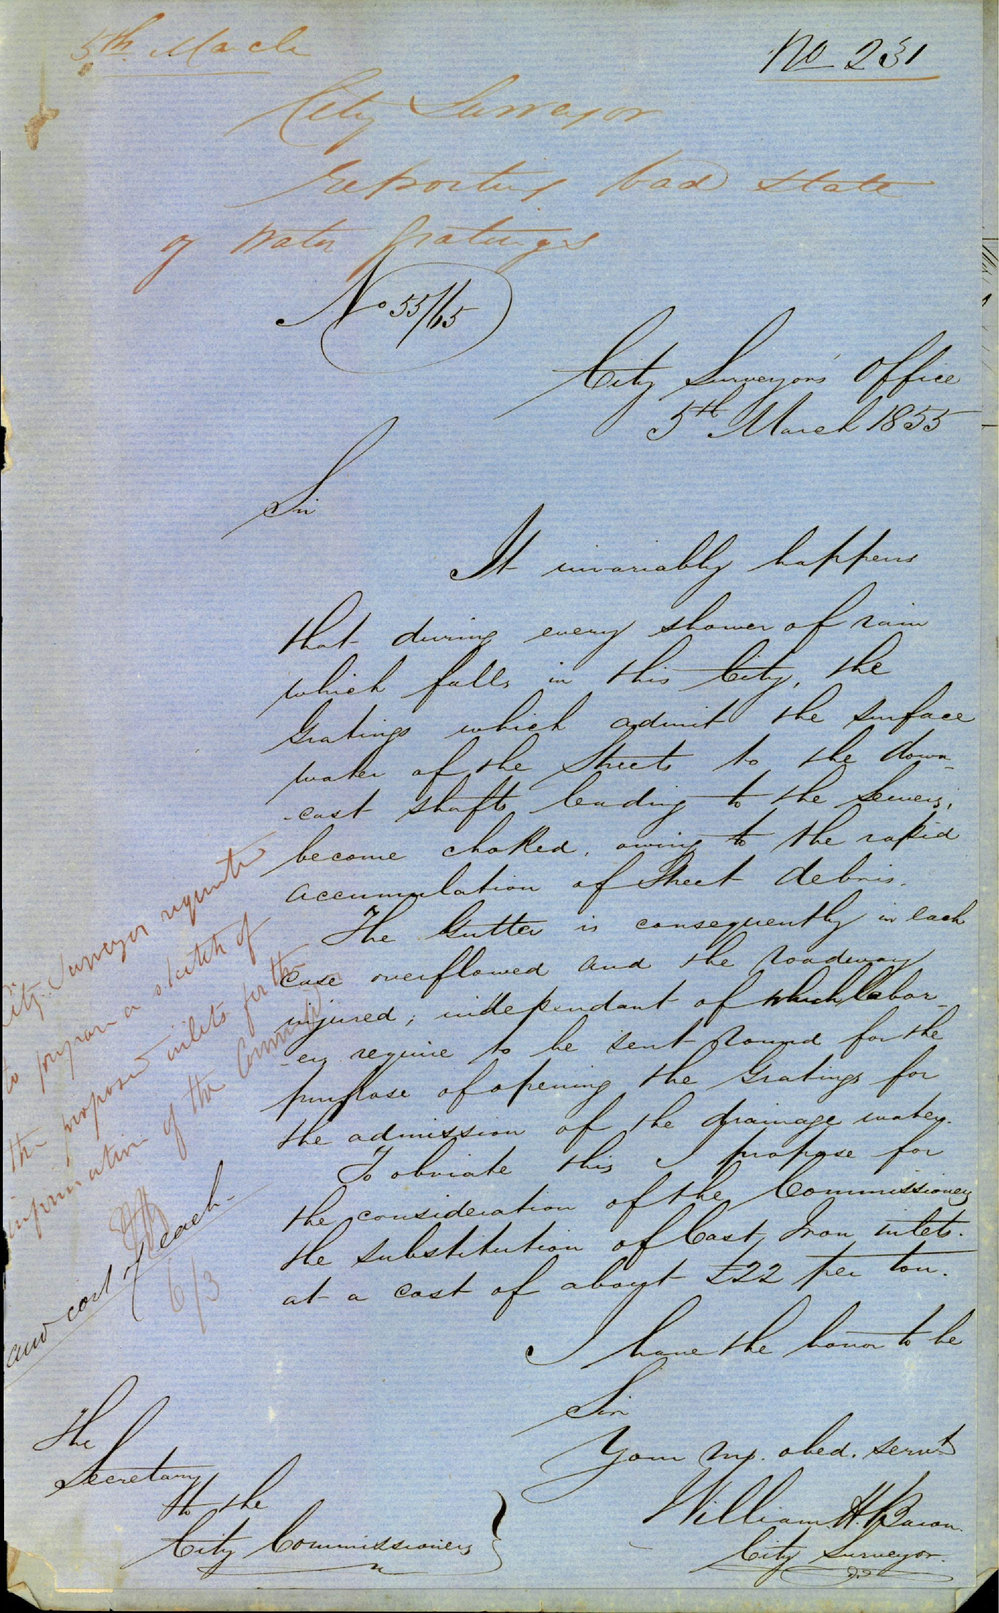 5th March
No 231
City Surveyor
reporting bad state
of Water Gratings
No 55/65
City Surveyor's Office
5th March 1855
Sir
It invariably happens
that during every shower of rain
which falls in this City, the
Gratings which admit the surface
water of the Streets to the down-
cast shafts leading to the Sewers,
become choked, owing to the rapid
accumulation of Street debris.
The Gutter is consequently in each
case overflowed and the roadway
injured; independant of which labor-
ers require to be sent round for the
purpose of opening the Gratings for
the admission of the drainage water.
To obviate this I propose for
the consideration of the Commissioners
the substitution of Cast Iron inlets.
at a cost of about £22 per ton.
I have the honor to be
Sir
Your mo. obed. servt
William H. Bacon.
City Surveyor.
The
Secretary
to the
City Commissioners
City Surveyor requested
to prepare a sketch of
the proposed inlets for the
information of the Commrs
and cost of each.
6/3